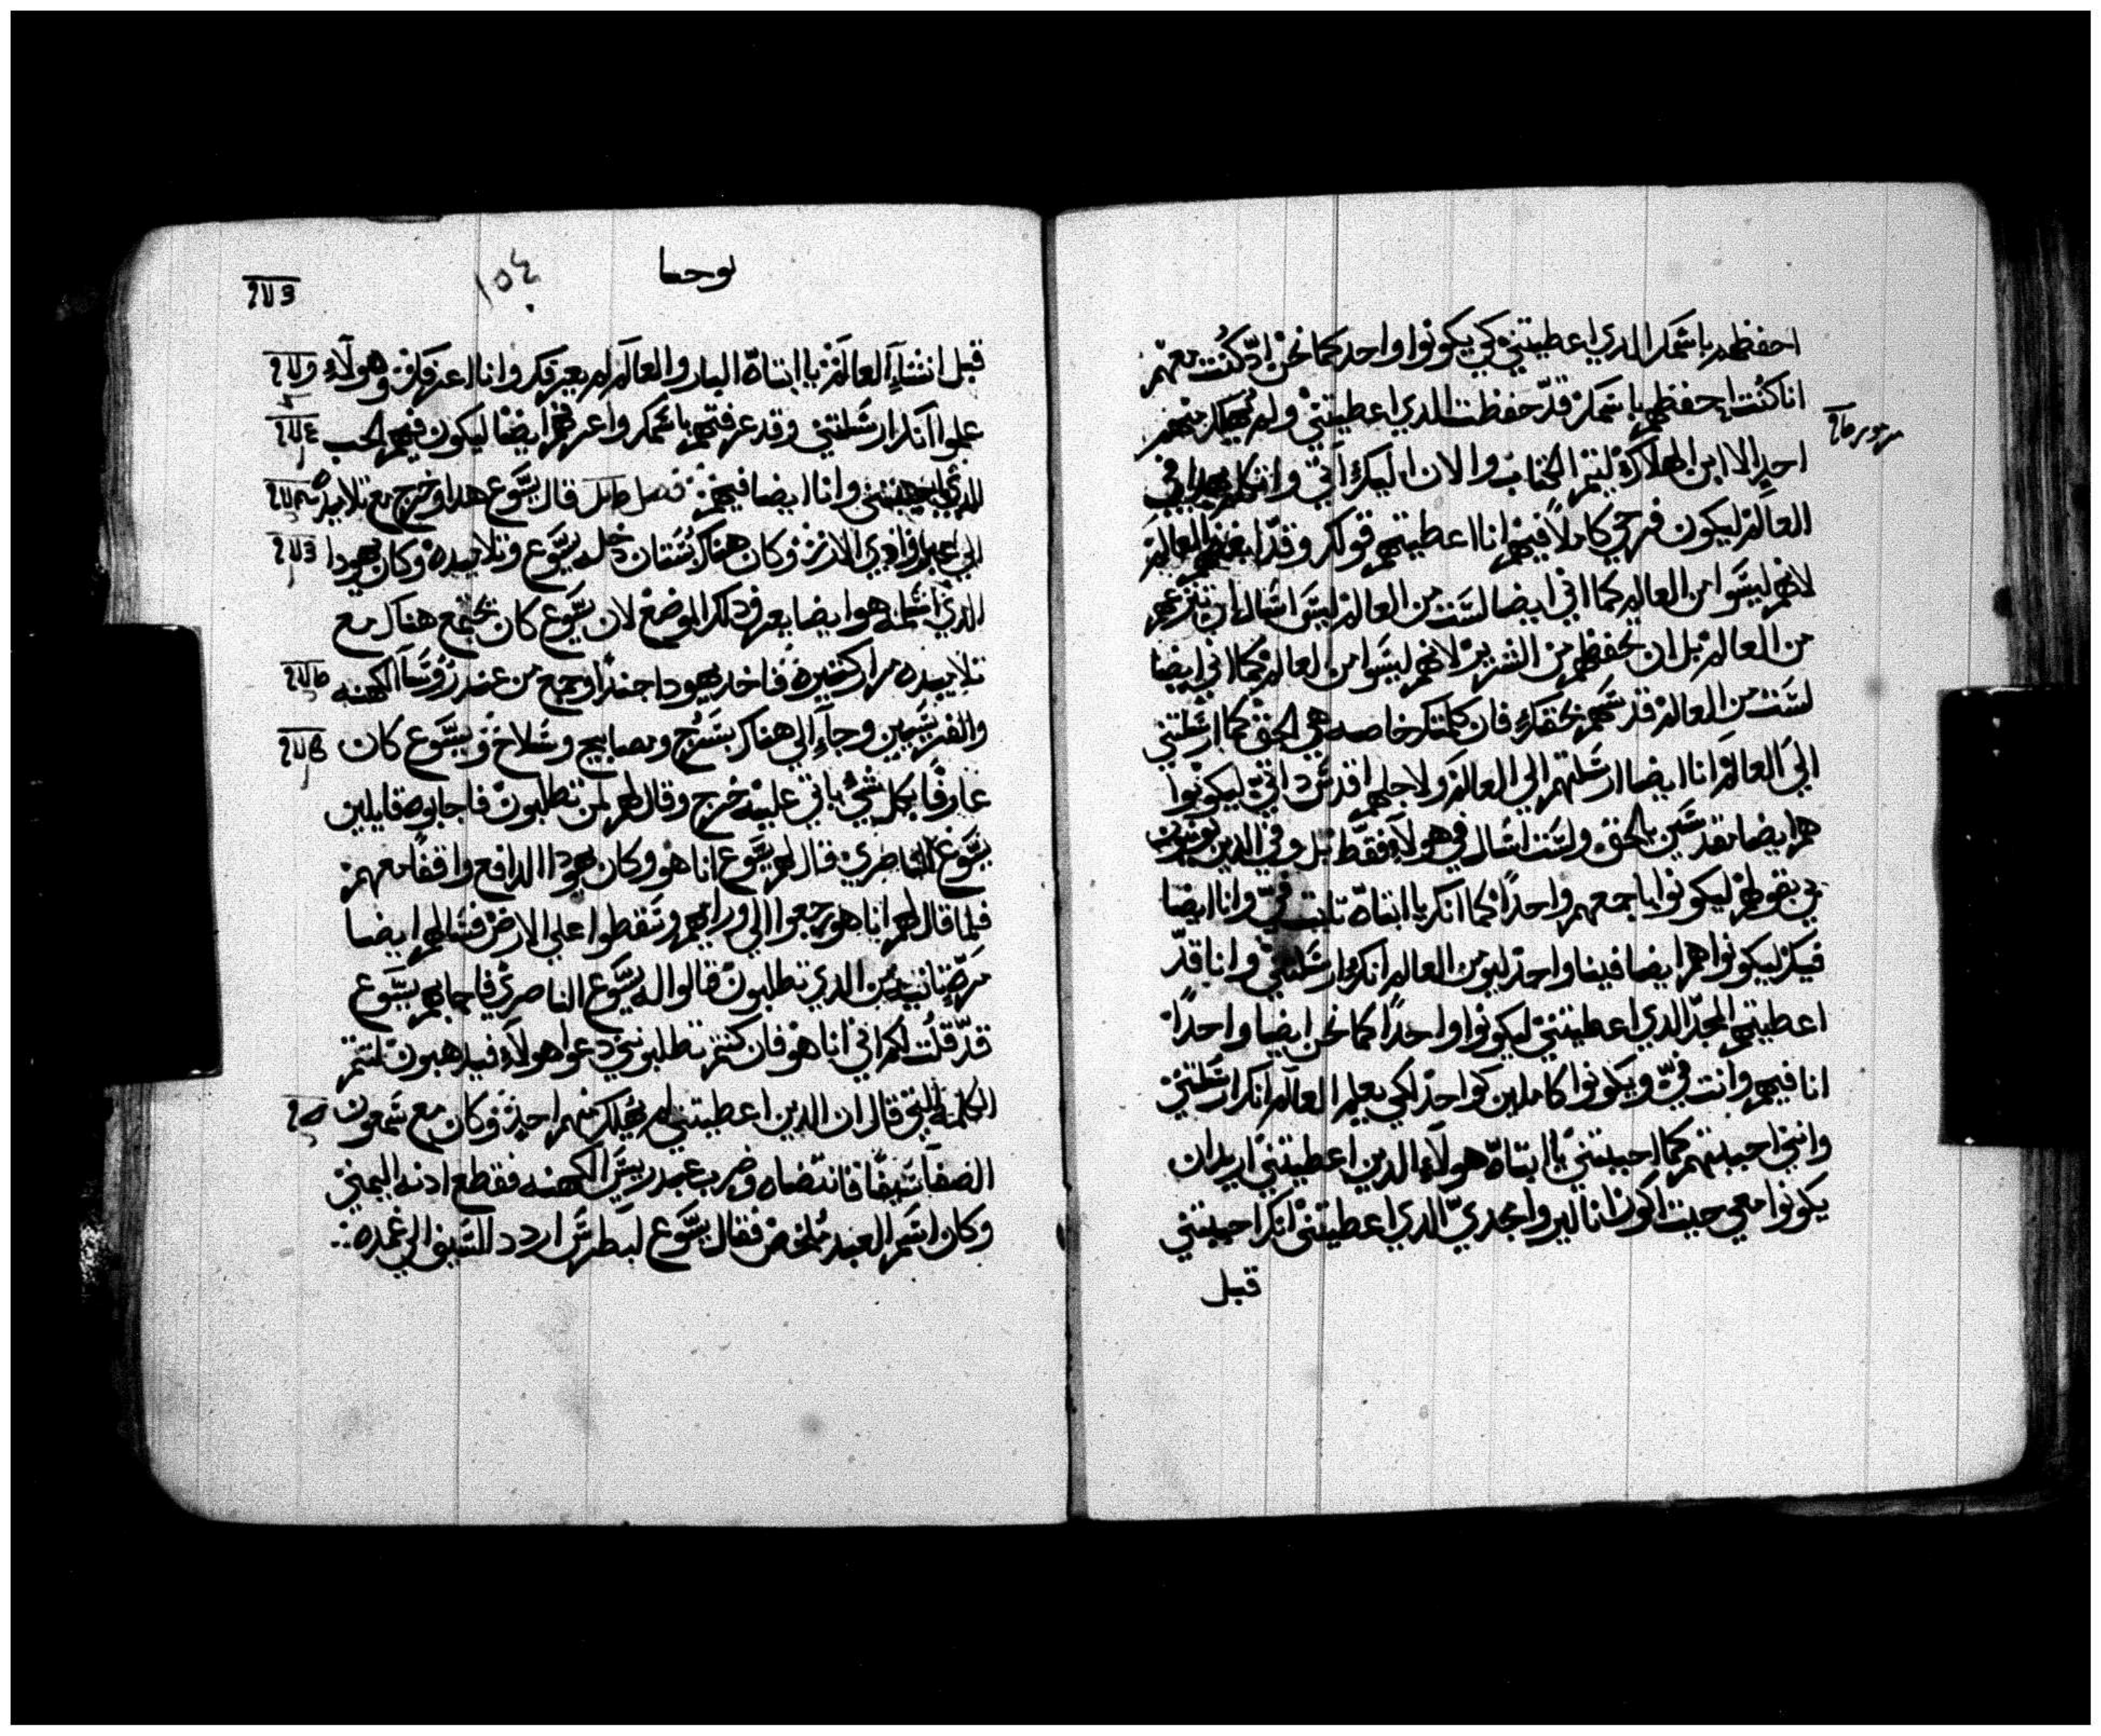 احفظهم باسمك الدي اعطيتني كي يكونوا واحد كما نحن اد كنت معهم
انا كنت احفظهم باسمك قد حفظت الدي اعطيتني ولم يهلك منهم
احد الا ابن الهلاكه ليتم الكتاب والان اليك اتي واتكلم بهدا في
العالم ليكون فرحي كاملا فيهم انا اعطيتهم قولك وقد ابغضهم العالم
لانهم ليسوا من العالم كما اني ايضا لست من العالم ليس اسال ان تنزعهم
من العالم بل ان تحفظهم من الشرير لانهم ليسوا من العالم كما اني ايضا
لست من العالم قدسهم بحقك فان كلمتك خاصه هي الحق كما ارسلتني
الي العالم انا ايضا ارسلتهم الي العالم ولاجلهم اقدس داتي ليكونوا
هم ايضا مقدسين بالحق ولست اسال في هولاء فقط بل وفي الدين يومنون
بي بقولهم ليكونوا باجمعهم واحدا كما انك يا ابتاه تابت في وانا ايضا
فيك ليكونوا هم ايضا فينا واحد ليومن العالم انك ارسلتني وانا قد
اعطيتهم المجد الدي اعطيتني ليكونوا واحدا كما نحن ايضا واحدا
انا فيهم وانت في ويكونوا كاملين كواحد لكي يعلم العالم انك ارسلتني
وانني احببتهم كما احببتني يا ابتاه هولاء الدين اعطيتني اريد ان
يكونوا معي حيت اكون انا ليروا مجدي الدي اعطيتني انك احببتني
قبل
يوحنا
١٥٤
قبل انشاء العالم يا ابتاه البار والعالم لم يعرفك وانا اعرفك وهولاء
علموا انك ارسلتني وقد عرفتهم باسمك واعرفهم ايضا ليكون فيهم الحب
الدي احببتني وانا ايضا فيهم فصل قال يسوع هدا وخرج مع تلاميده
الي عبر وادي الارز وكان هناك بستان دخله يسوع وتلاميده وكان يهودا
الدي اسلمه هو ايضا يعرف دلك الموضع لان يسوع كان يجتمع هناك مع
تلاميده مرار كتيره فاخد يهودا جندا وجمع من عند روسا الكهنه
والفريسيين وجاء الي هناك بسرج ومصابيح وسلاح ويسوع كان
عارفا بكل شي ياتي عليه خرج وقال لهم من تطلبون فاجابوه قايلين
يسوع الناصري قال لهم يسوع انا هو وكان يهودا الدافع واقفا معهم
فلما قال لهم انا هو رجعوا الي وراهم وسقطوا علي الارض فسالهم ايضا
مره تانيه من الدي تطلبون قالوا له يسوع الناصري فاجابهم يسوع
قد قلت لكم اني انا هو فان كنتم تطلبوني دعوا هولاء فيدهبون لتتم
الكلمه التي قال ان الدين اعطيتني لم يهلك منهم احد وكان مع سمعون
الصفا سيفا فانتضاه وضرب عبد ريس الكهنه فقطع ادنه اليمني
وكان اسم العبد ملخص فقال يسوع لبطرس اردد السيف الي غمده